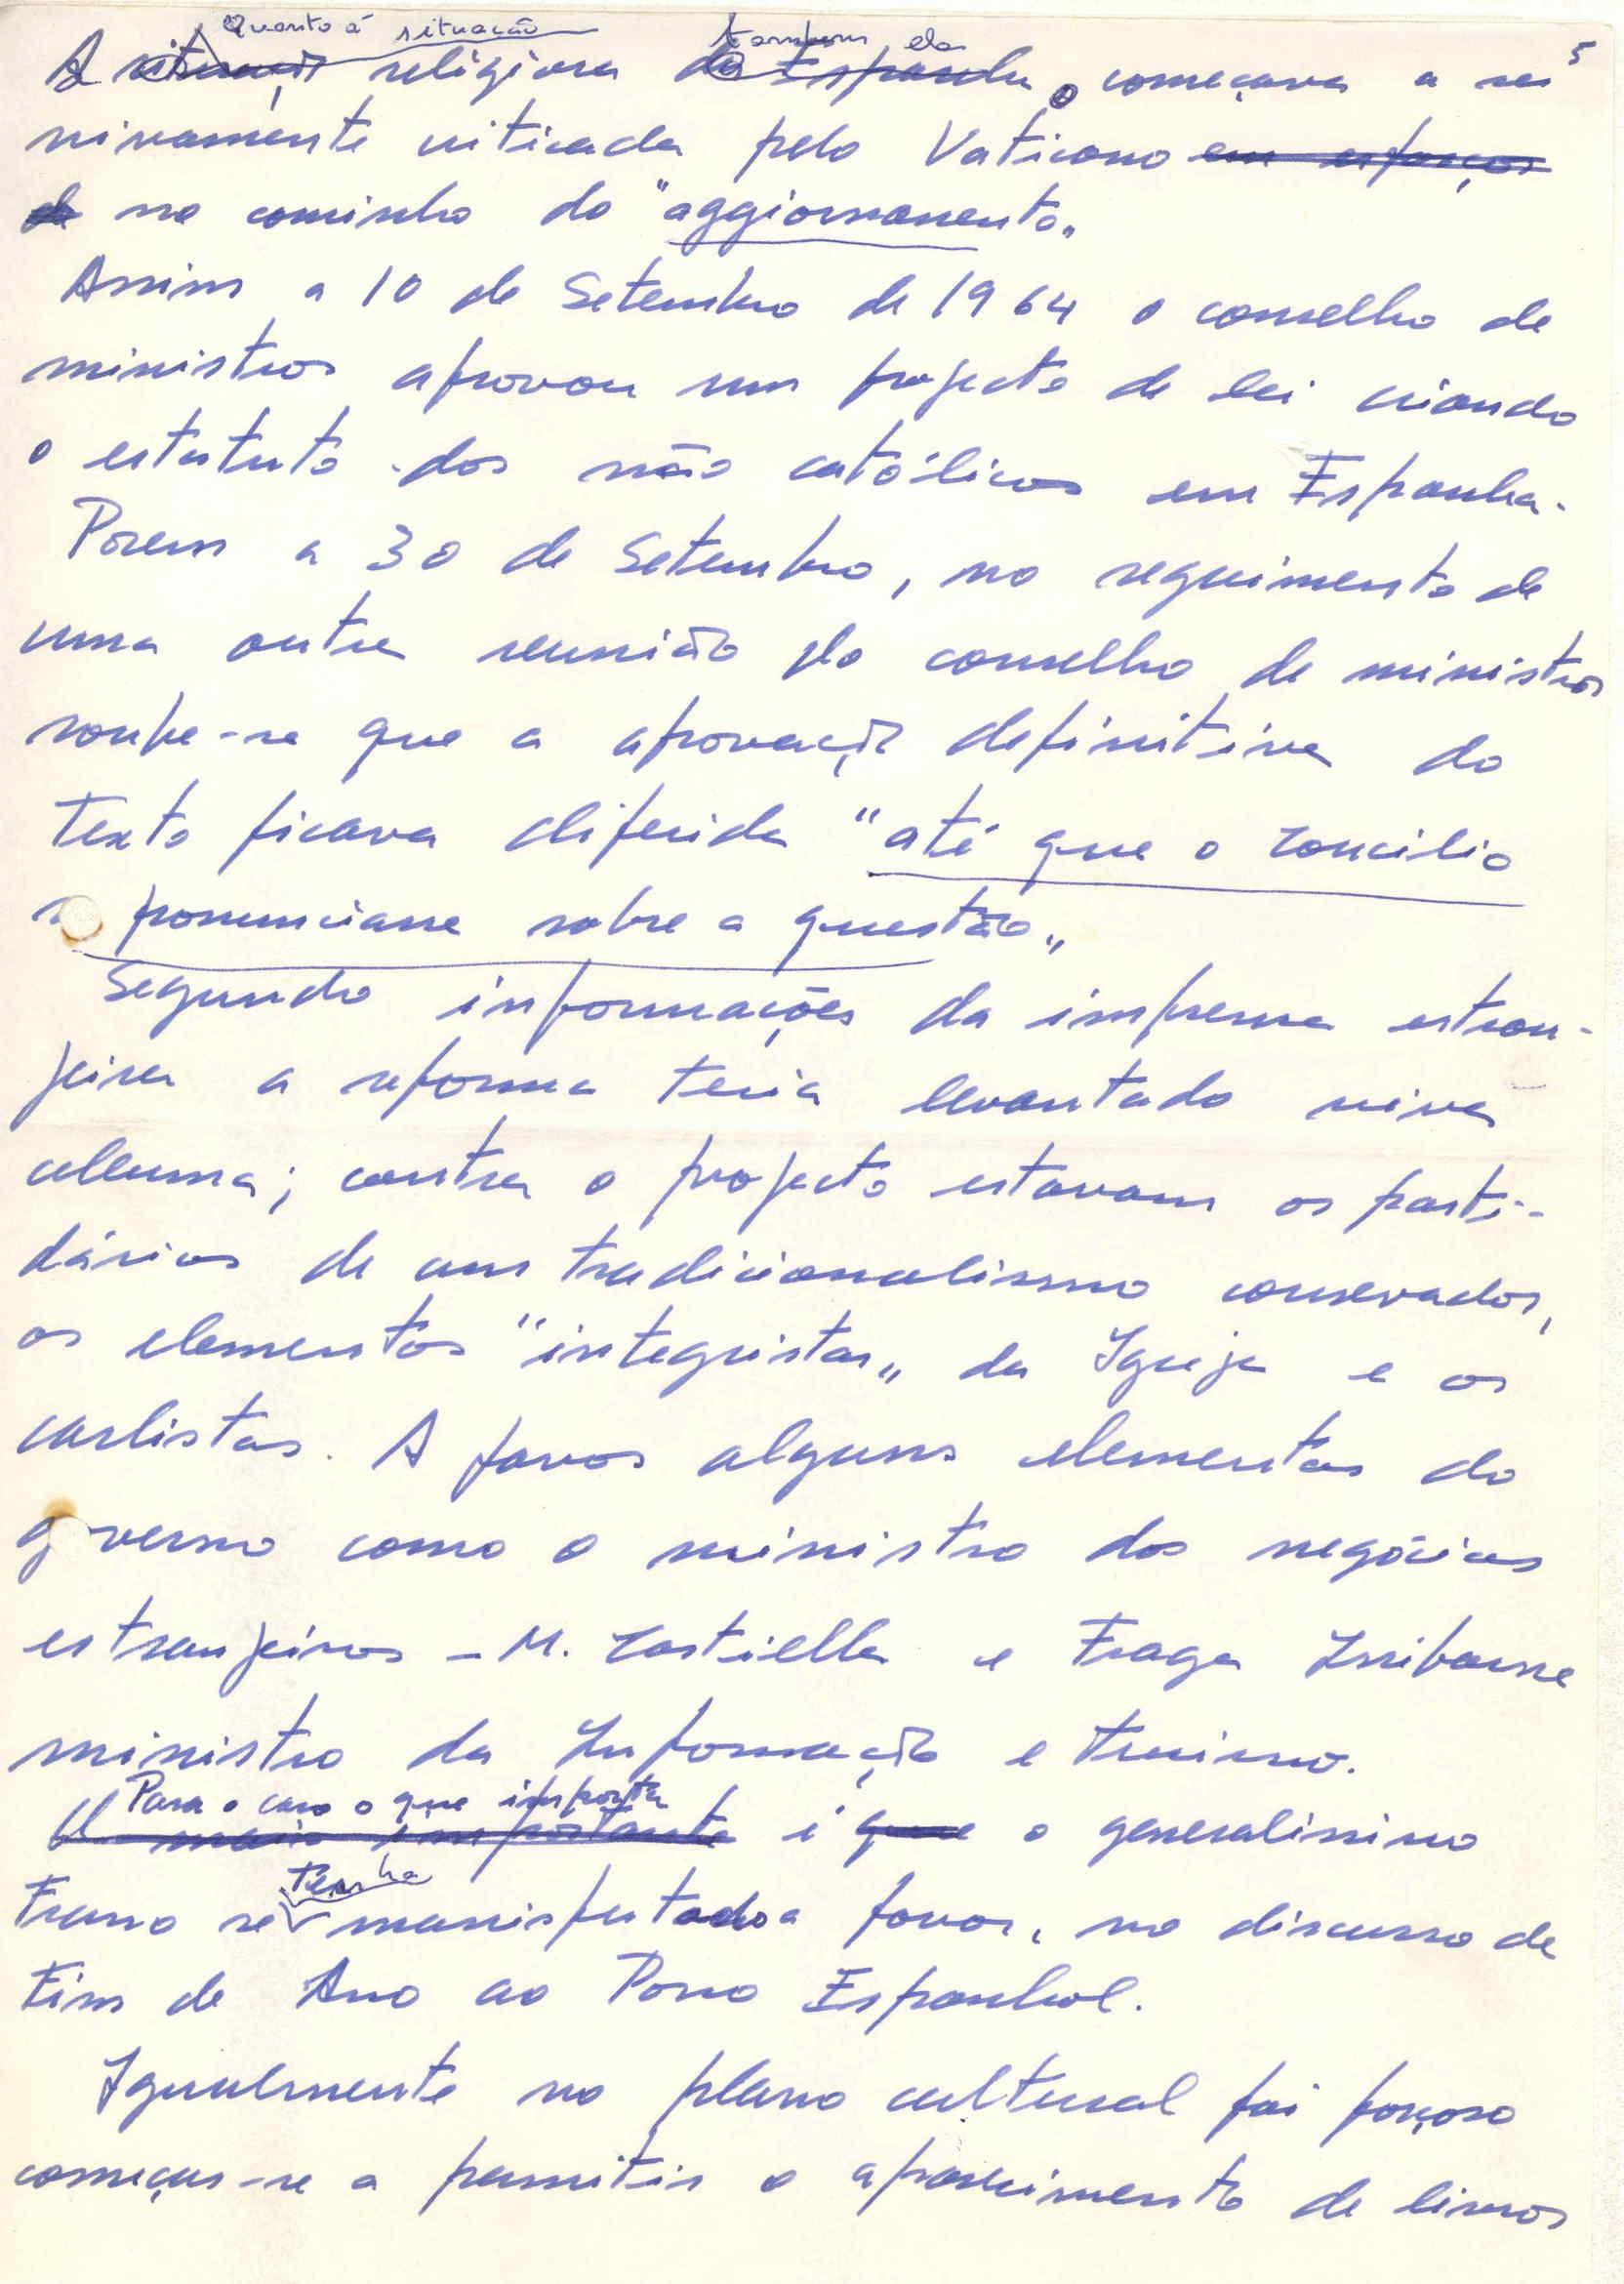 5
Quanto à situação também ela
A situação religiosa da Espanha, começava a ser
vivamente criticada pelo Vaticano em esforços
de no caminho do "aggiornamento„
Assim a 10 de Setembro de 1964 o conselho de
ministros aprovou um projecto de lei criando
o estatuto dos não católicos em Espanha.
Porem a 30 de Setembro, no seguimento de
uma outra reunião do conselho de ministros
soube-se que a aprovação definitiva do
texto ficava diferida "até que o concilio
se pronunciasse sobre a questão„
Segundo informações da imprensa estran-
jeira a reforma teria levantado viva
celeuma; contra o projecto estavam os parti-
dários de um tradicionalismo conservador,
os elementos "integristas„ da Igreja e os
carlistas. A favor alguns elementos do
governo como o ministro dos negócios
estranjeiros - M. Castiella e Fraga Iribarne
ministro da Informação e turismo.
Para o caso o que importa
O mais importante é que o generalissimo
tenha
Franco se manifestado a favor, no discurso de
Fim de Ano ao Povo Espanhol.
Igualmente no plano cultural foi forçoso
começar-se a permitir o aparecimento de livros